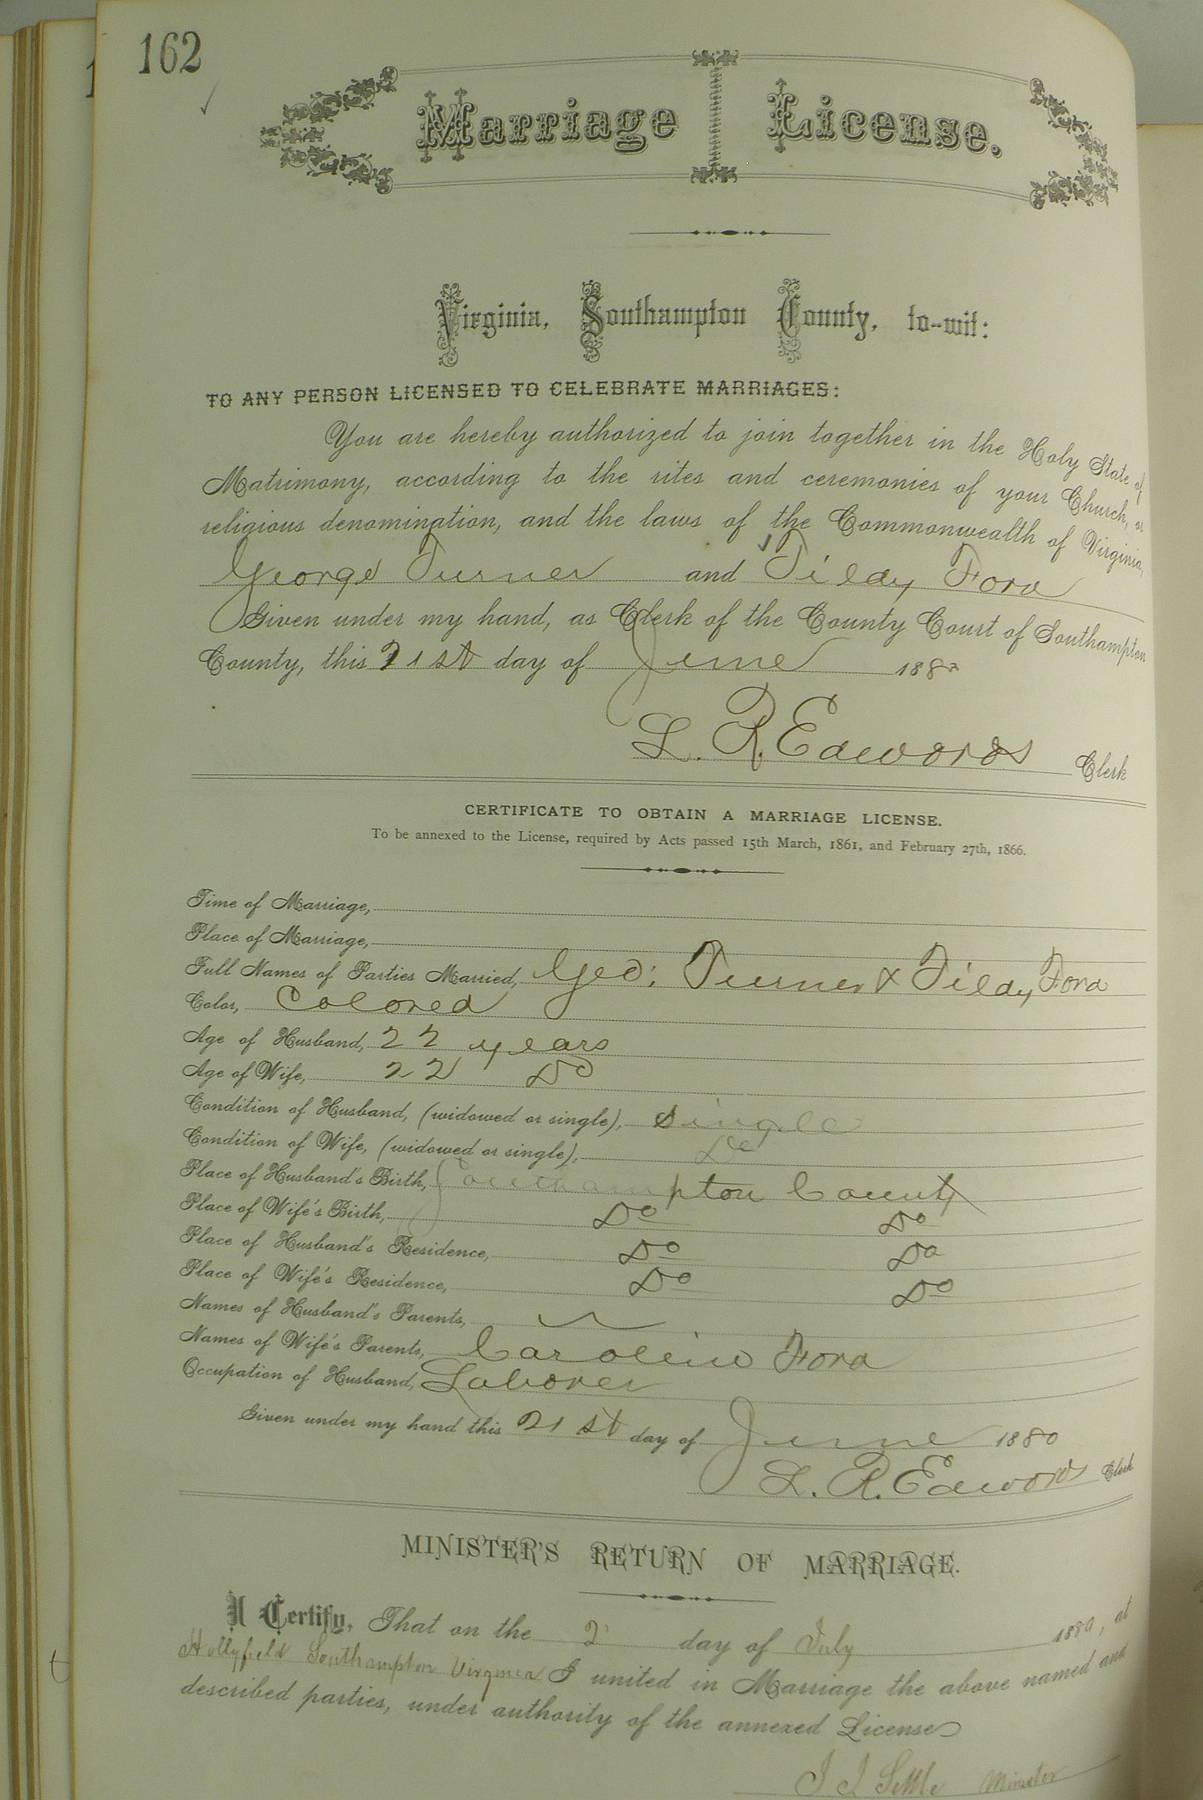 162
Marriage License.
Virginia, Southampton County, to-wit:
TO ANY PERSON LICENSED TO CELEBRATE MARRIAGES:
You are hereby authorized to join together in the Holy State of
Matrimony, according to the rites and ceremonies of your Church, or
religious denomination, and the laws of the Commonwealth of Virginia,
George Turner and Tildy Ford
Given under my hand, as Clerk of the County Court of Southampton
County, this 21st day of June 1880
L. R. Edwards Clerk
CERTIFICATE TO OBTAIN A MARRIAGE LICENSE.
To be annexed to the License, required by Acts passed 15th March, 1861, and February 27th, 1866.
Time of Marriage,
Place of Marriage,
Full Names of Parties Married, Geo: Turner & Tildy Ford
Color, Colored
Age of Husband, 22 years
Age of Wife, 22 Do
Condition of Husband, (widowed or single), single
Condition of Wife, (widowed or single), Do
Place of Husband's Birth, Southampton County
Place of Wife's Birth, Do Do
Place of Husband's Residence, Do Do
Place of Wife's Residence, Do Do
Names of Husband's Parents,
Names of Wife's Parents, Caroline Ford
Occupation of Husband, Laborer
Given under my hand this 21st day of June 1880
L. R. Edwards Clerk
MINISTER'S RETURN OF MARRIAGE.
I Certify, That on the 2 day of July 1880, at
Hollyfield Southampton Virginia I united in Marriage the above named and
described parties, under authority of the annexed License
Settle Minister